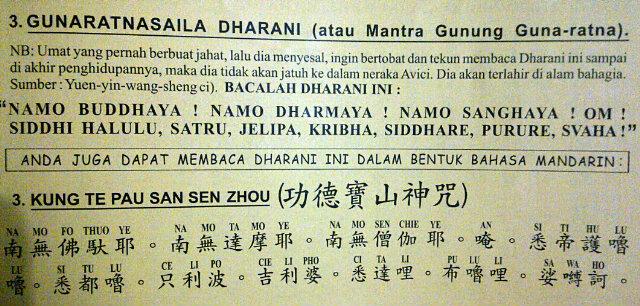 3. GUNARATNASAILA DHARANI (atau Mantra Gunung Guna-ratna).
NB: Umat yang pernah berbuat jahat, lalu dia menyesal, ingin bertobat dan tekun membaca Dharani ini sampai
di akhir penghidupannya, maka dia tidak akan jatuh ke dalam neraka Avici. Dia akan terlahir di alam bahagia.
Sumber : Yuen-yin-wang-sheng ci). BACALAH DHARANI INI :
“NAMO BUDDHAYA ! NAMO DHARMAYA ! NAMO SANGHAYA ! OM !
SIDDHI HALULU, SATRU, JELIPA, KRIBHA, SIDDHARE, PURURE, SVAHA !”
ANDA JUGA DAPAT MEMBACA DHARANI INI DALAM BENTUK BAHASA MANDARIN :
3. KUNG TE PAU SAN SEN ZHOU (功德寶山神咒)
NA MO FO THUO YE NA MO TA MO YE NA MO SEN CHIE YE AN SI TI HU LU
南無佛馱耶。南無達摩耶。南無僧伽耶。唵。悉帝護嚕
LU SI TU LU CE LI PO CIE LI PHO CI TA LI PU LU LI SA WA HO
嚕。悉都嚕。只利波。吉利婆。悉達哩。布嚕哩。娑嚩訶。